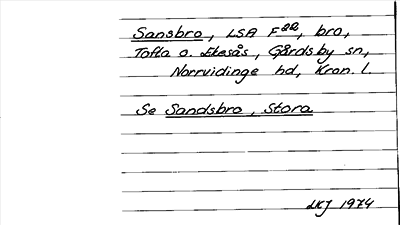 Sansbro, LSA F22, bro,
Tofta o. Ekesås, Gårdsby sn,
Norrvidinge hd, Kron. l.
Se Sandsbro, Stora
LKJ 1974